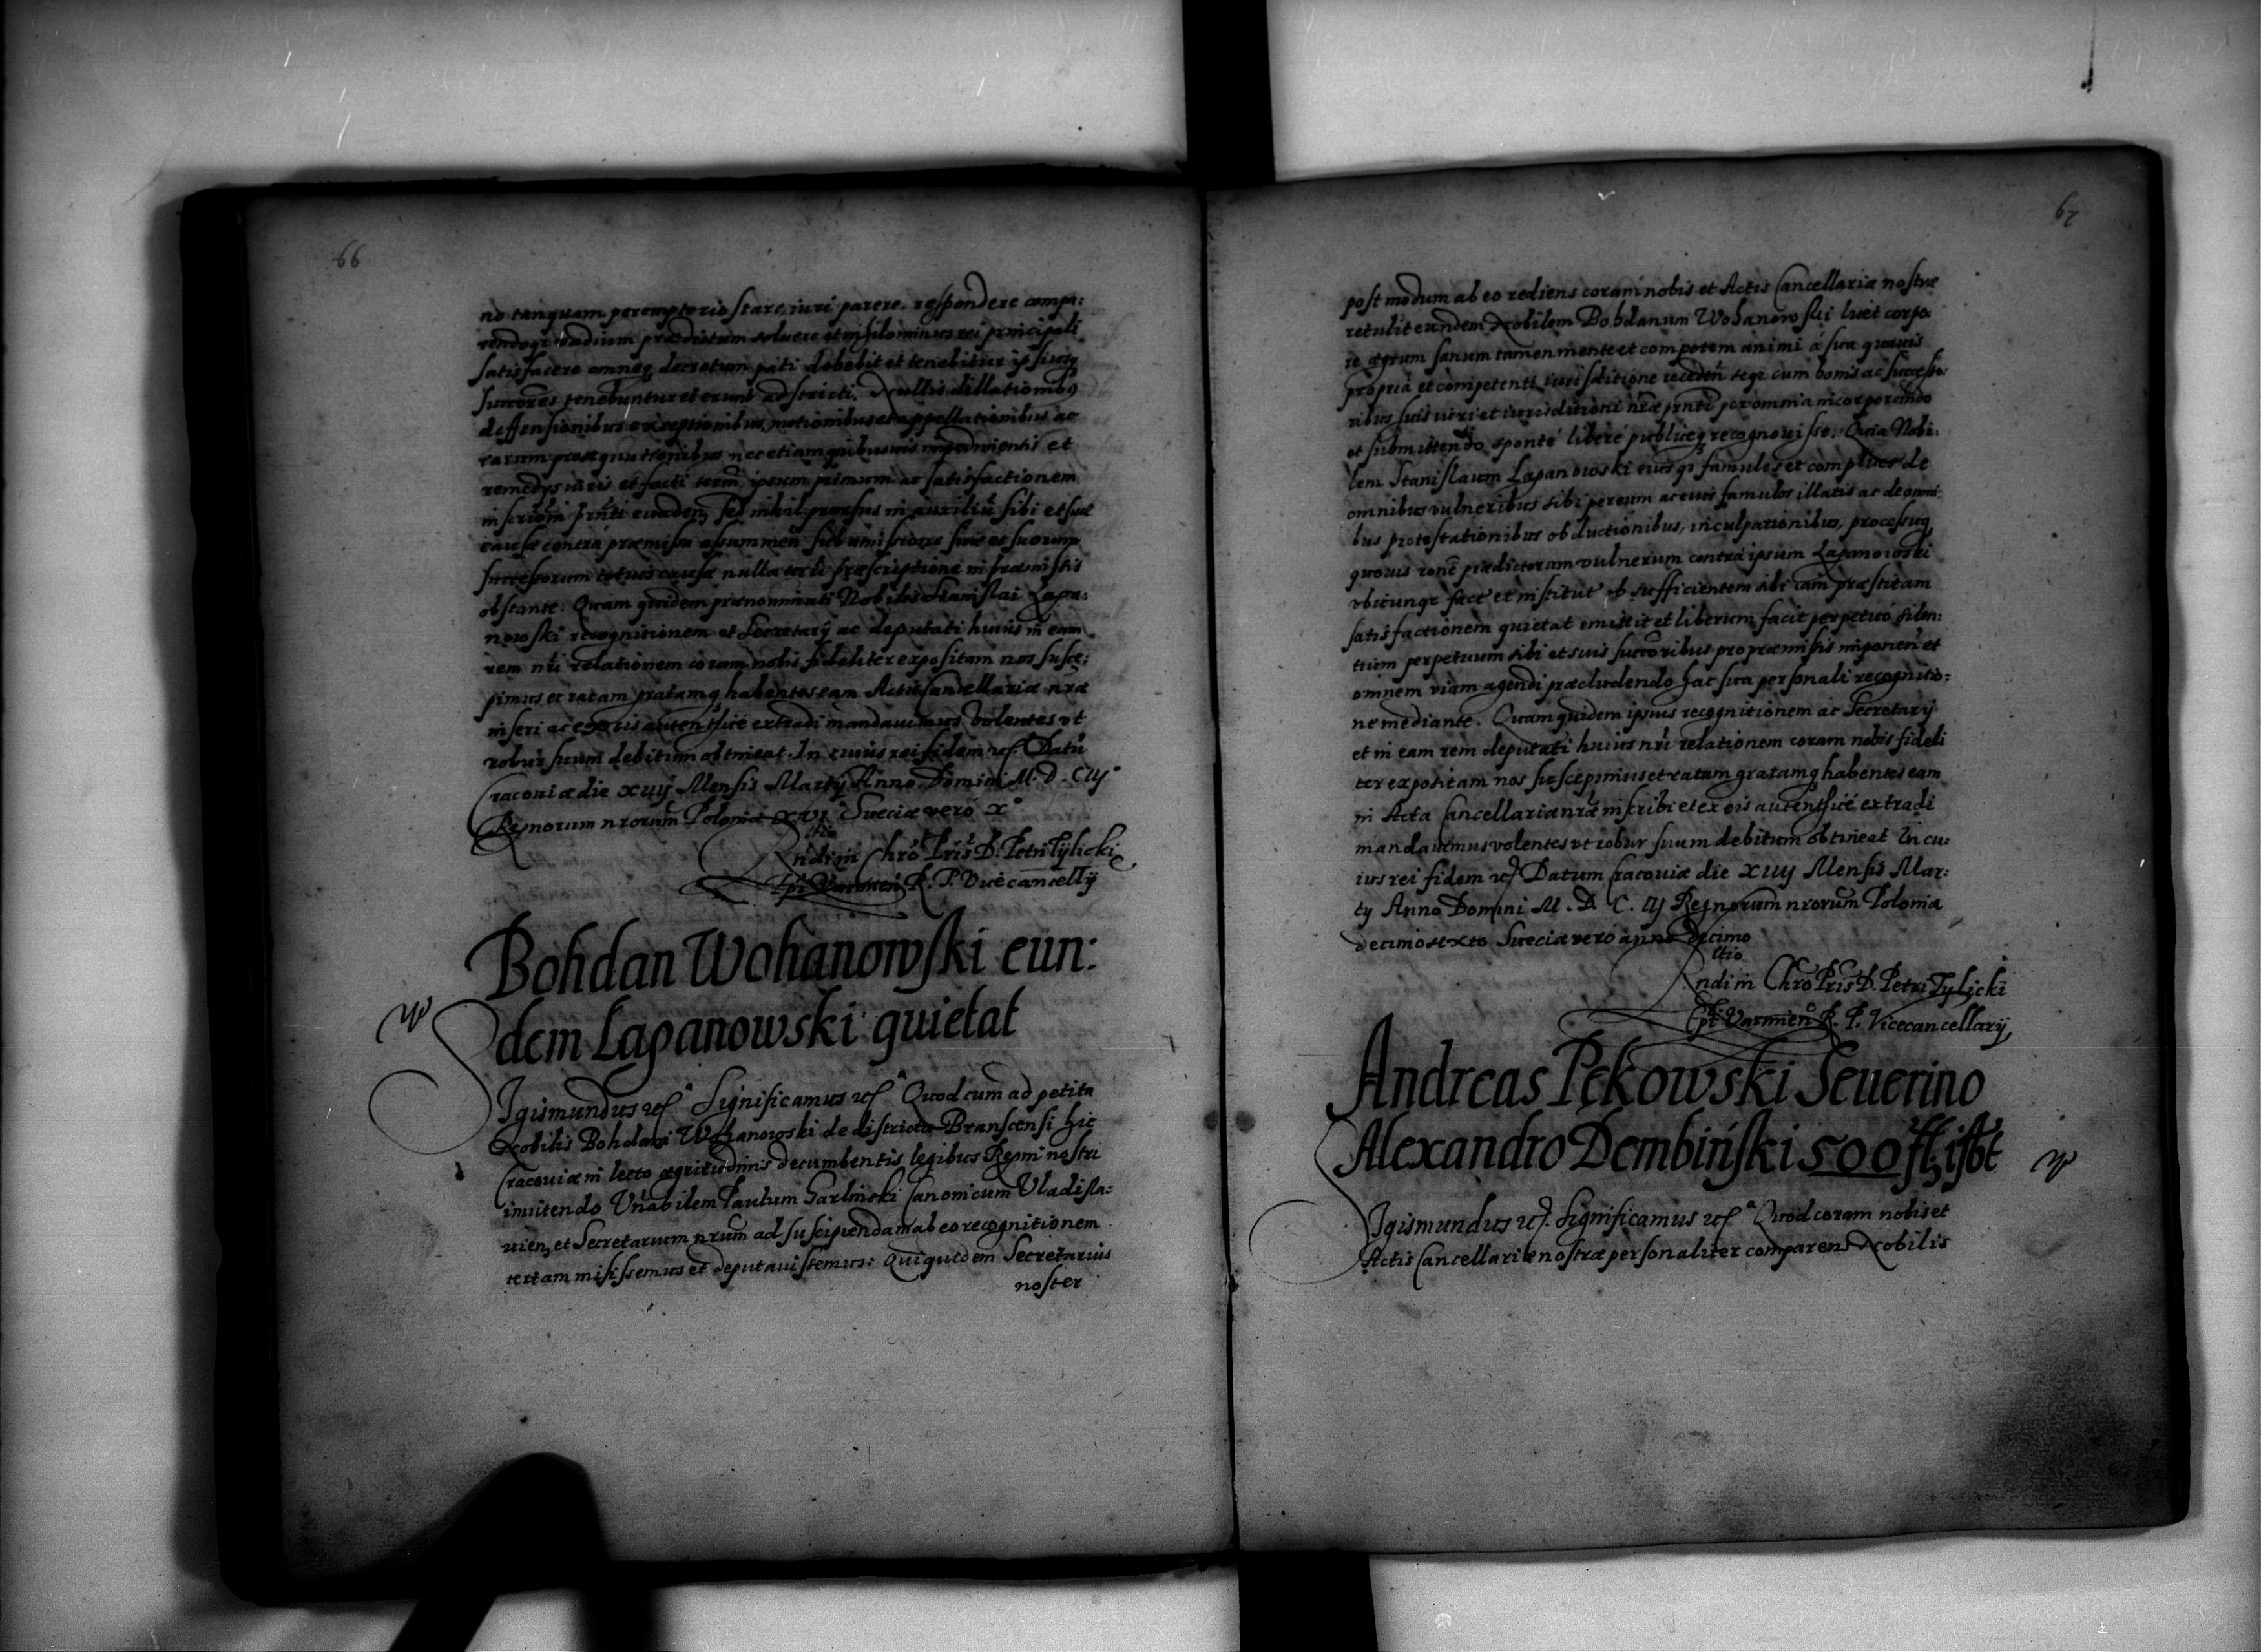 66
no tanquam peremptorio stare, iuri parere, respondere compa:
rendoqz vadium prædictum soluere et nihilominus rei principali
satisfacere omneqz decretum pati debebit et tenebitur ipsiusqz
succores tenebuntur et erunt adstricti. Nullis dillationibus
deffensionibus exceptionibus, motionibus et appellationibus ac
earum prosequutionibus nec etiam quibusuis impedimentis et
remedys iuris et facti termi ipsum primum ac satisfactionem
in scriom prnti euaden, sed nihil prorsus in auxiliu sibi et suæ
causæ contra præmissa assummen submissione sua et suorum
successorum totius causæ nulla terræ præscriptione in præmissis
obstante. Quam quidem prænominati Nobilis Stanislai Lapa:
nowski recognitionem et Secretarÿ ac deputati huius in eam
rem nri relationem coram nobis fideliter expositam nos susce:
pimus et ratam gratamqz habentes eam Actis Cancellariæ nræ
inseri ac ex eis autentice extradi mandauimus volentes vt
robur suum debitum obtineat. In cuius rei fidem etc. Datu
Cracouiæ die xuıȷ Mensis Martÿ Anno Domini M.D.Cıȷ°
Regnorum nrorum Poloniæ xvı Sueciæ vero x°
Rltio
Rndi in Chro Pris D. Petri Tÿlicki
Epi Varmien R. P. Vicecancellÿ
Bohdan Wohanowski eun:
dem Lapanowski quietat
Sigismundus etc. Significamus etc. Quod cum ad petita
Nobilis Bohdani Wohanowski de districtu Branscensi hic
Cracouiæ in lecto ægritudinis decumbentis legibus Regni nostri
innitendo Vnabilem Paulum Garlinski Canonicum Vladisla:
uien, et Secretarium nrum ad suscipiendam ab eo recognitionem
certam misissemus et deputauissemus: Qui quidem Secretarius
noster
67
post modum ab eo rediens coram nobis et Actis Cancellariæ nostræ
retulit eundem Nobilem Bohdanum Wohanowski licet corpo
re ægrum sanum tamen mente et compotem animi á sua quauis
propria et competenti iurisditione receden seqz cum bonis ac successo:
ribus suis iuri et iurisditioni nræ prnti per omnia incorporando
et submittendo sponté liberé publiceqz recognouisse. Quia Nobi:
lem Stanislaum Lapanowski eiusqz famulos et complices de
omnibus vulneribus sibi per eum ac eius famulos illatis ac de omni:
bus protestationibus obductionibus, inculpationibus, processuqz
quouis rone prædictoram vulnerum contra ipsum Lapanowski
vbicunqz fact et institut ob sufficientem sibi iam præstitam
satisfactionem quietat emittit et liberum facit perpetuó silen:
tium perpetuum sibi et suis succoribus pro præmissis imponen et
omnem viam agendi præcludendo hac sua personali recognitio:
ne mediante. Quam quidem ipsius recognitionem ac Secretarÿ
et in eam rem deputati huius nri relationem coram nobis fideli
ter expositam nos suscepimus et ratam gratamqz habentes eam
in Acta Cancellariæ nræ inscribi et ex eis autenticé extradi
mandauimus volentes vt robur suum debitum obtineat In cu:
ius rei fidem etc. Datum Cracouiæ die xuıȷ Mensis Mar:
tÿ Anno Domini M.D.C.ıȷ Regnorum nrorum Poloniæ
decimo sexto Sueciæ veró anno decimo
Rltio
Rndi in Chro Pris D. Petri Tÿlicki
Epi Varmien R. P. Vicecancellarÿ
Andreas Pękowski Seuerino
Alexandro Dembiński 500 fl, isbt
Sigismundus etc. Significamus etc. Quod coram nobis et
Actis Cancellariæ nostræ personaliter comparens Nobilis